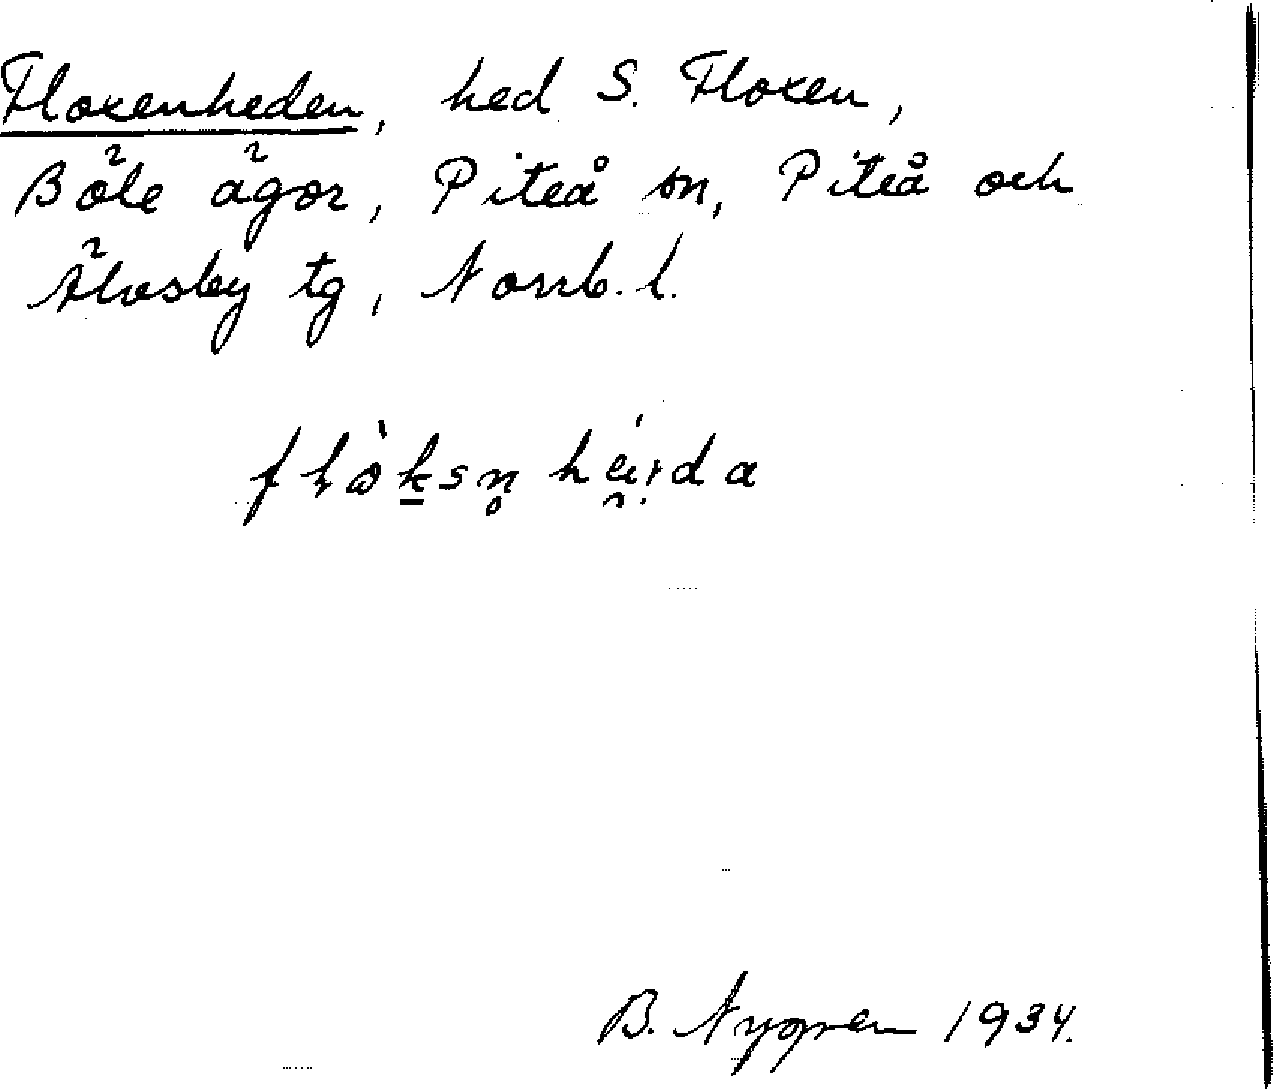 Floxenheden, hed S. Floxen,
Böle ägor, Piteå sn, Piteå och
Älvsby tg, Norrb. l.
B. Nygren 1934.